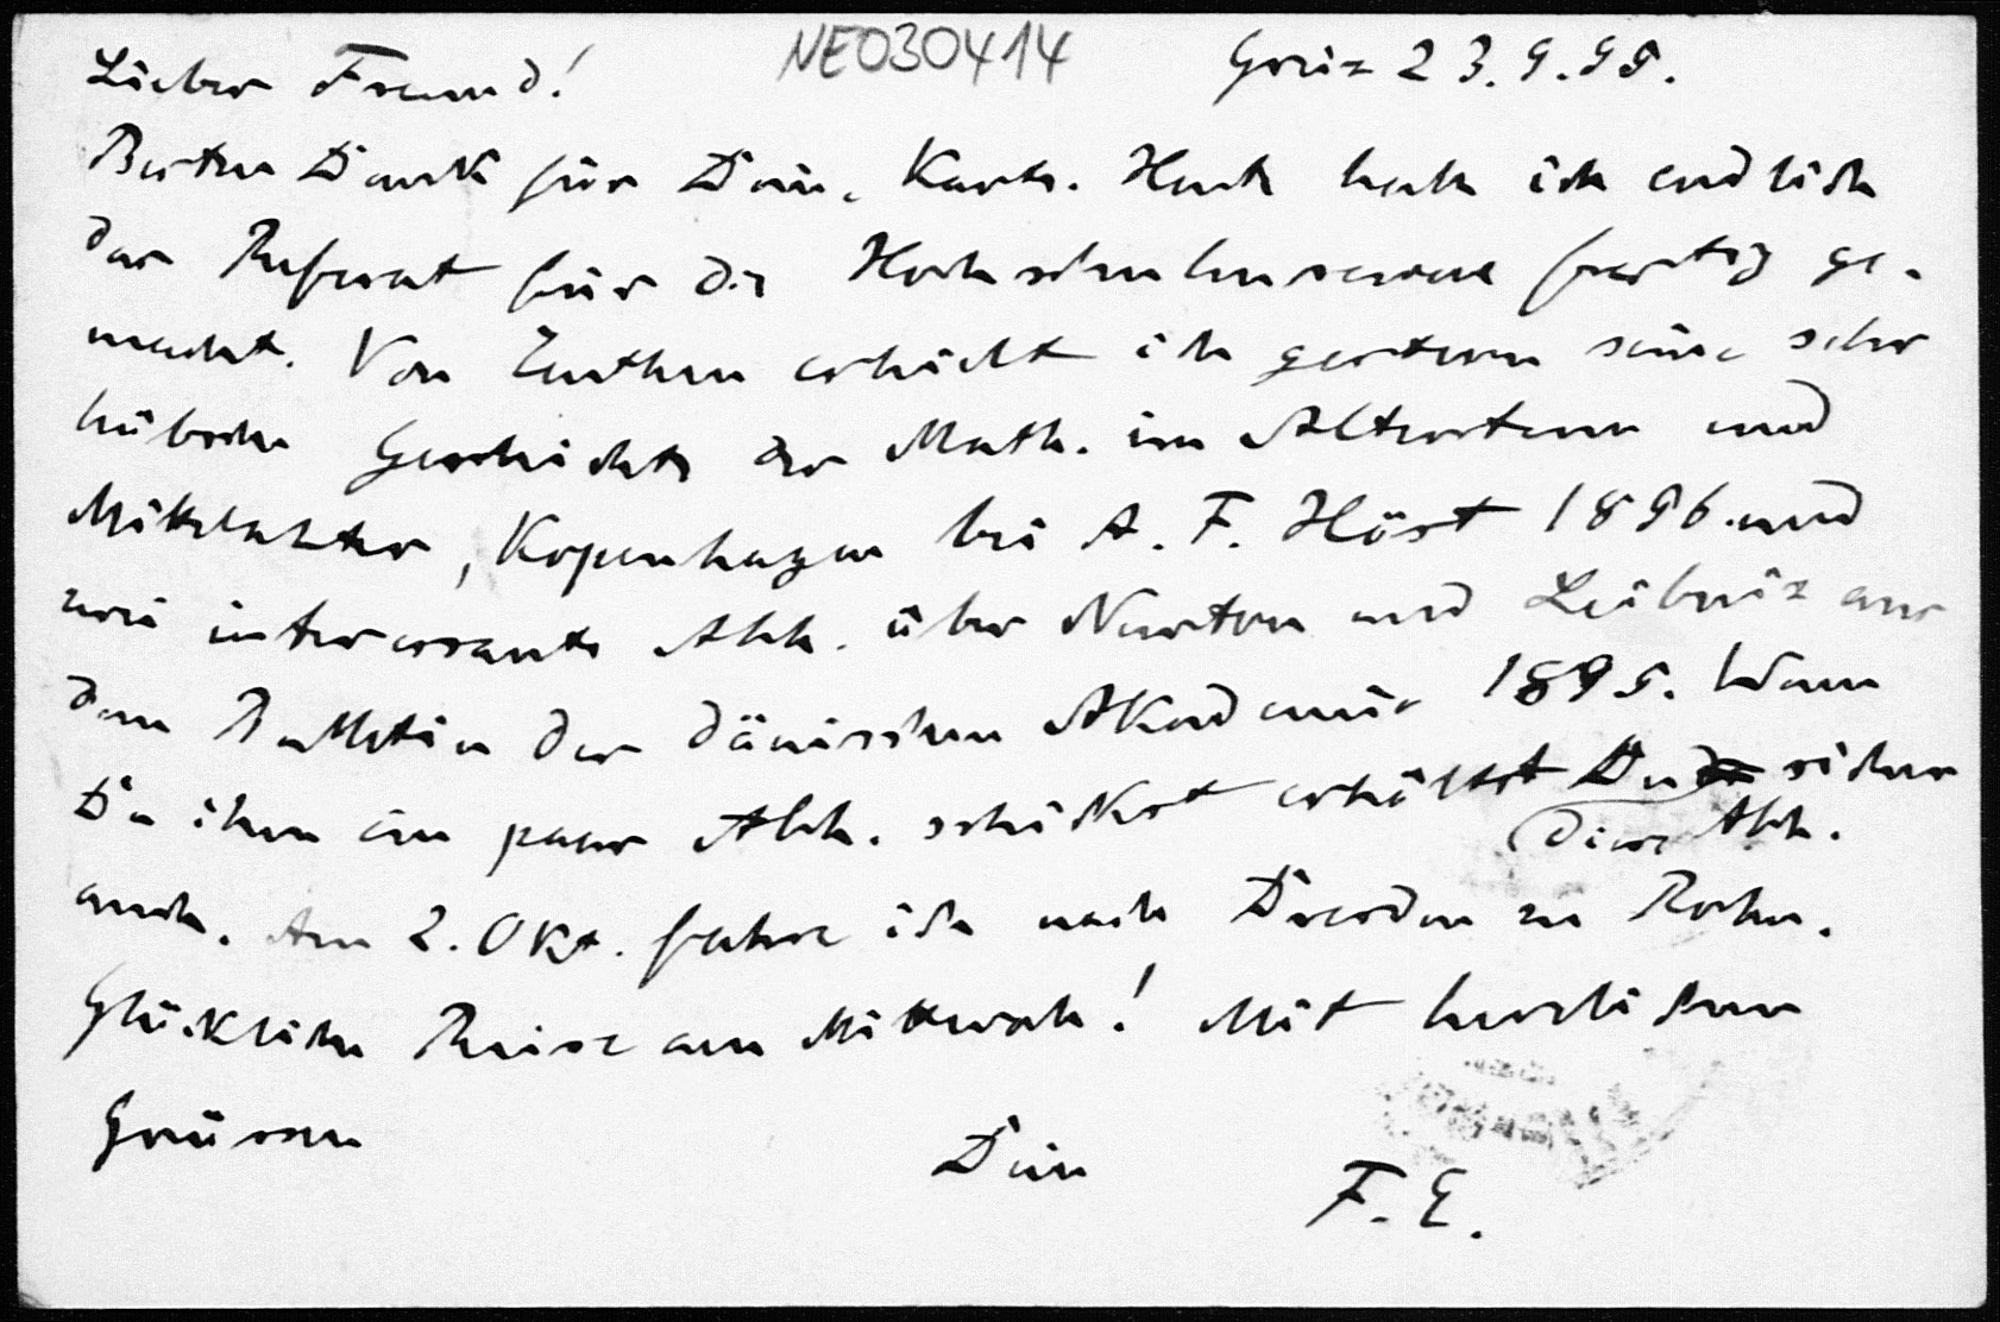 NE030414
Lieber Freund! Greiz 23.9.95.
Besten Dank für Deine Karte. Heute habe ich endlich
das Referat für die Hochschulrevue fertig ge-
macht. Von Zeuthen erhielt ich gestern seine sehr
hübsche Geschichte der Math. im Altertum und
Mittelalter, Kopenhagen bei A. F. Höst 1896 und
zwei interessante Abh. über Newton und Leibniz aus
dem Bulletin der dänischen Akademie 1895. Wenn
Du ihm ein paar Abh. schickst erhältst Du sicher
diese Abh.
auch. Am 2. Okt. fahre ich nach Dresden zu Rohn.
Glückliche Reise am Mittwoch! Mit herzlichen
Grüssen
Dein
F. E.